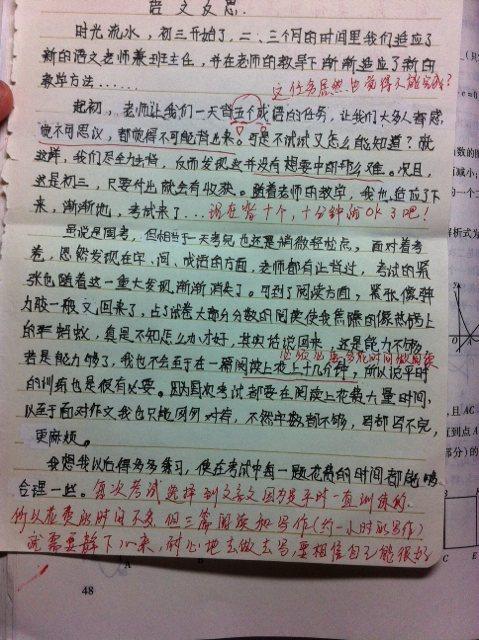 语文反思
时光流水，初三开始了，二、三个月的时间里我们适应了
新的语文老师兼班主任，并在老师的教导下渐渐适应了新的
教学方法……
这任务居然也觉得不能完成？
起初，老师让我们一天背五个成语的任务，让我们大多人都感
觉不可思议，都觉得不可能背出来。可是不试试又怎么能知道？就
这样，我们尽全力去背，反而发现这并没有想要中的那么难。况且，
这是初三，只要付出就会有收获。随着老师的教学，我也适应了下
来，渐渐地，考试来了…
现在背十个，十分钟就OK了吧！
虽说是周考，但相当于一天考完也还是稍微轻松点，面对着考
卷，忽然发现在字、词、成语的方面，老师都有让背过，考试的紧
张也随着这一重大发现渐渐消失了。可到了阅读方面，紧张像弹
力球一般又回来了，占了试卷大部分分数的阅读使我焦躁的像热锅上
的蚂蚁，真是不知怎么办才好，其实话说回来，这是能力不够，
若是能力够了，我也不会至于在一篇阅读上花上十几分钟，所以说平时
的训练也是很有必要。因为每次考试都要在阅读上花费大量时间，
以至于面对作文我也只能匆匆对待，不然字数都不够，写都写不完，
更麻烦。
我想我以后得多多练习，使在考试中每一题花费的时间都能够
合理一些。
每次考试选择到文言文因为是平时一直训练的，
所以应费的时间不多，但三篇阅读和写作（约一小时的写作）
就需要静下心来，耐心地去做去写，要相信自己能很好
48